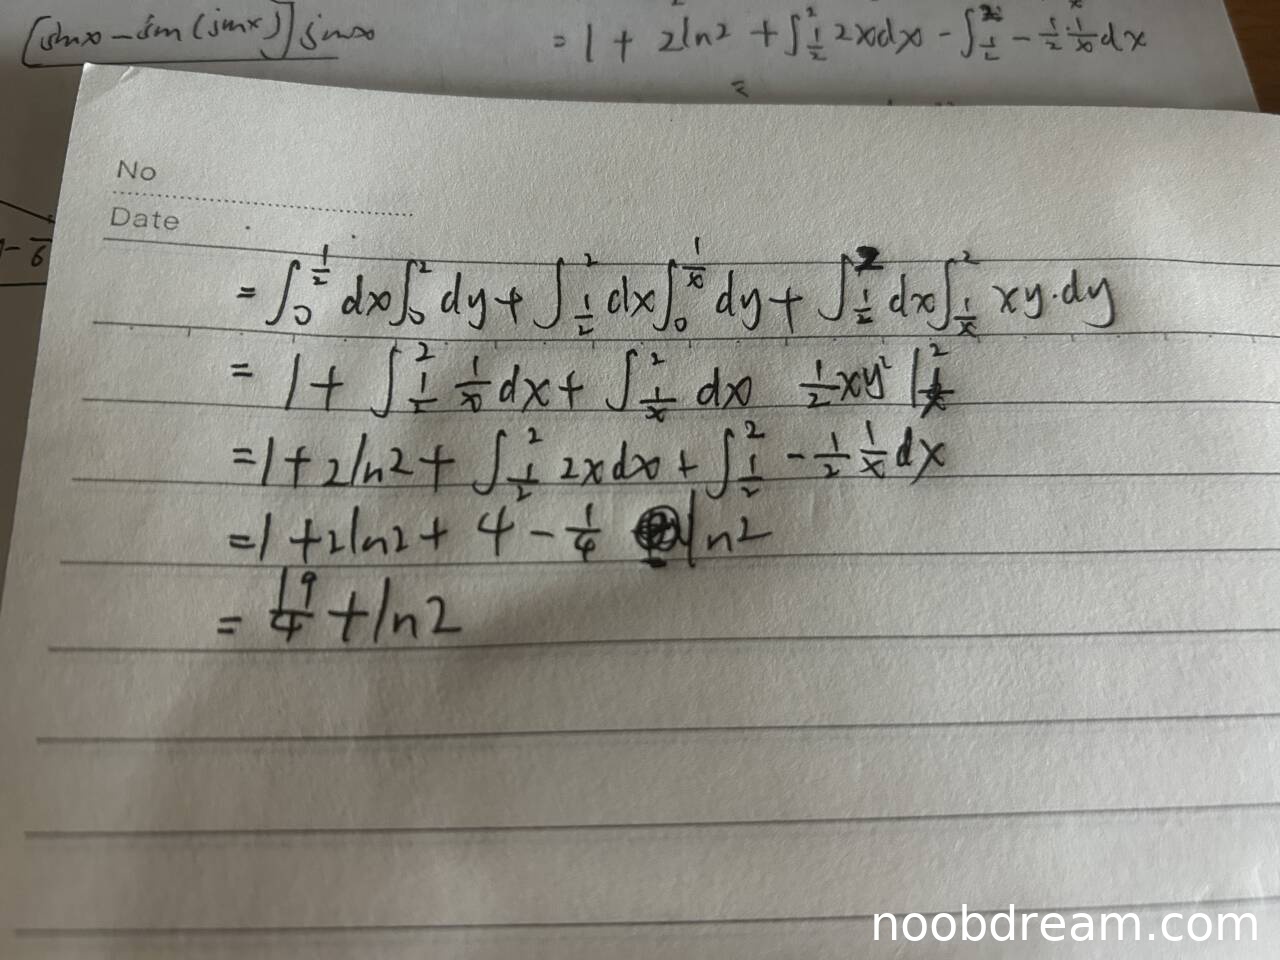 [sinx - sin(sinx)] sinx
= 1 + 2ln2 + ∫_{1/2}^{2} 2xdx - ∫_{1/2}^{2} - 1/2 · 1/x dx
=
No
Date
= ∫_{0}^{1/2} dx ∫_{0}^{2} dy + ∫_{1/2}^{2} dx ∫_{0}^{1/x} dy + ∫_{1/2}^{2} dx ∫_{1/x}^{2} xy·dy
= 1 + ∫_{1/2}^{2} 1/x dx + ∫_{1/x}^{2} dx 1/2 xy² |_{1/x}^{2}
= 1 + 2ln2 + ∫_{1/2}^{2} 2xdx + ∫_{1/2}^{2} - 1/2 1/x dx
= 1 + 2ln2 + 4 - 1/4 ln2
= 19/4 + ln2
noobdream.com